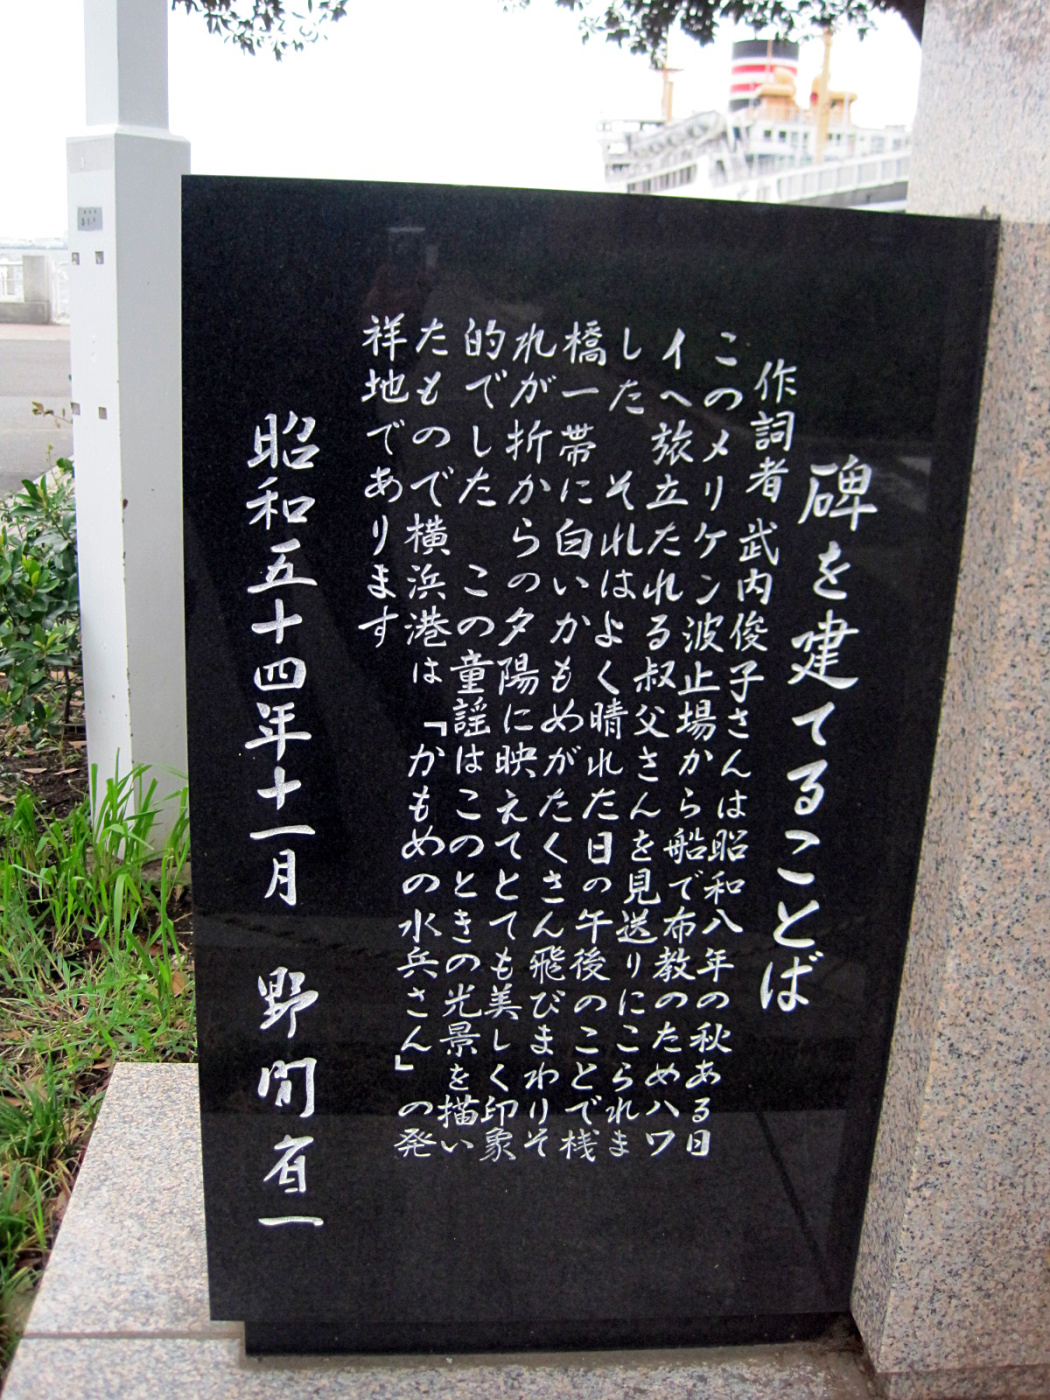 碑を建てることば
作詞者 武内俊子さんは昭和八年の秋ある日
このメリケン波止場から船で布教のためハワ
イへ旅立たれる叔父さんを見送りにこられま
した それはよく晴れた日の午後のことで桟
橋一帯に白いかもめがたくさん飛びまわりそ
れが折からの夕陽に映えてとても美しく印象
的でした この童謡はこのときの光景を描い
たもので横浜港は「かもめの水兵さん」の発
祥地であります
昭和五十四年十一月 野間省一